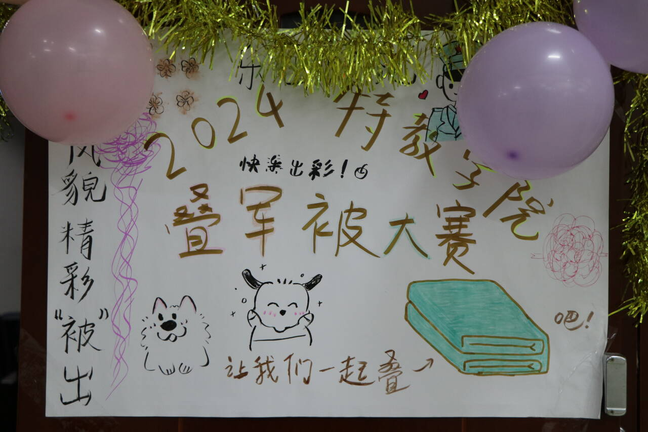 2024 特教学院
快乐出彩!
叠军被大赛
风貌精彩“被”出
让我们一起叠→
吧!